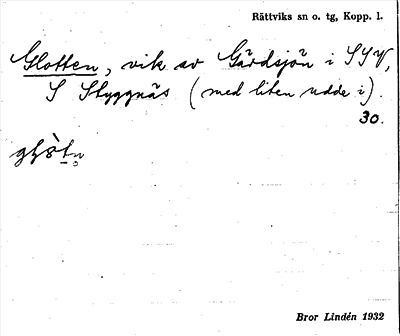 Rättviks sn o. tg, Kopp. l.
Glotten, vik av Gårdsjön i SSV,
S Styggnäs (med liten udde i).
30.
Bror Lindén 1932